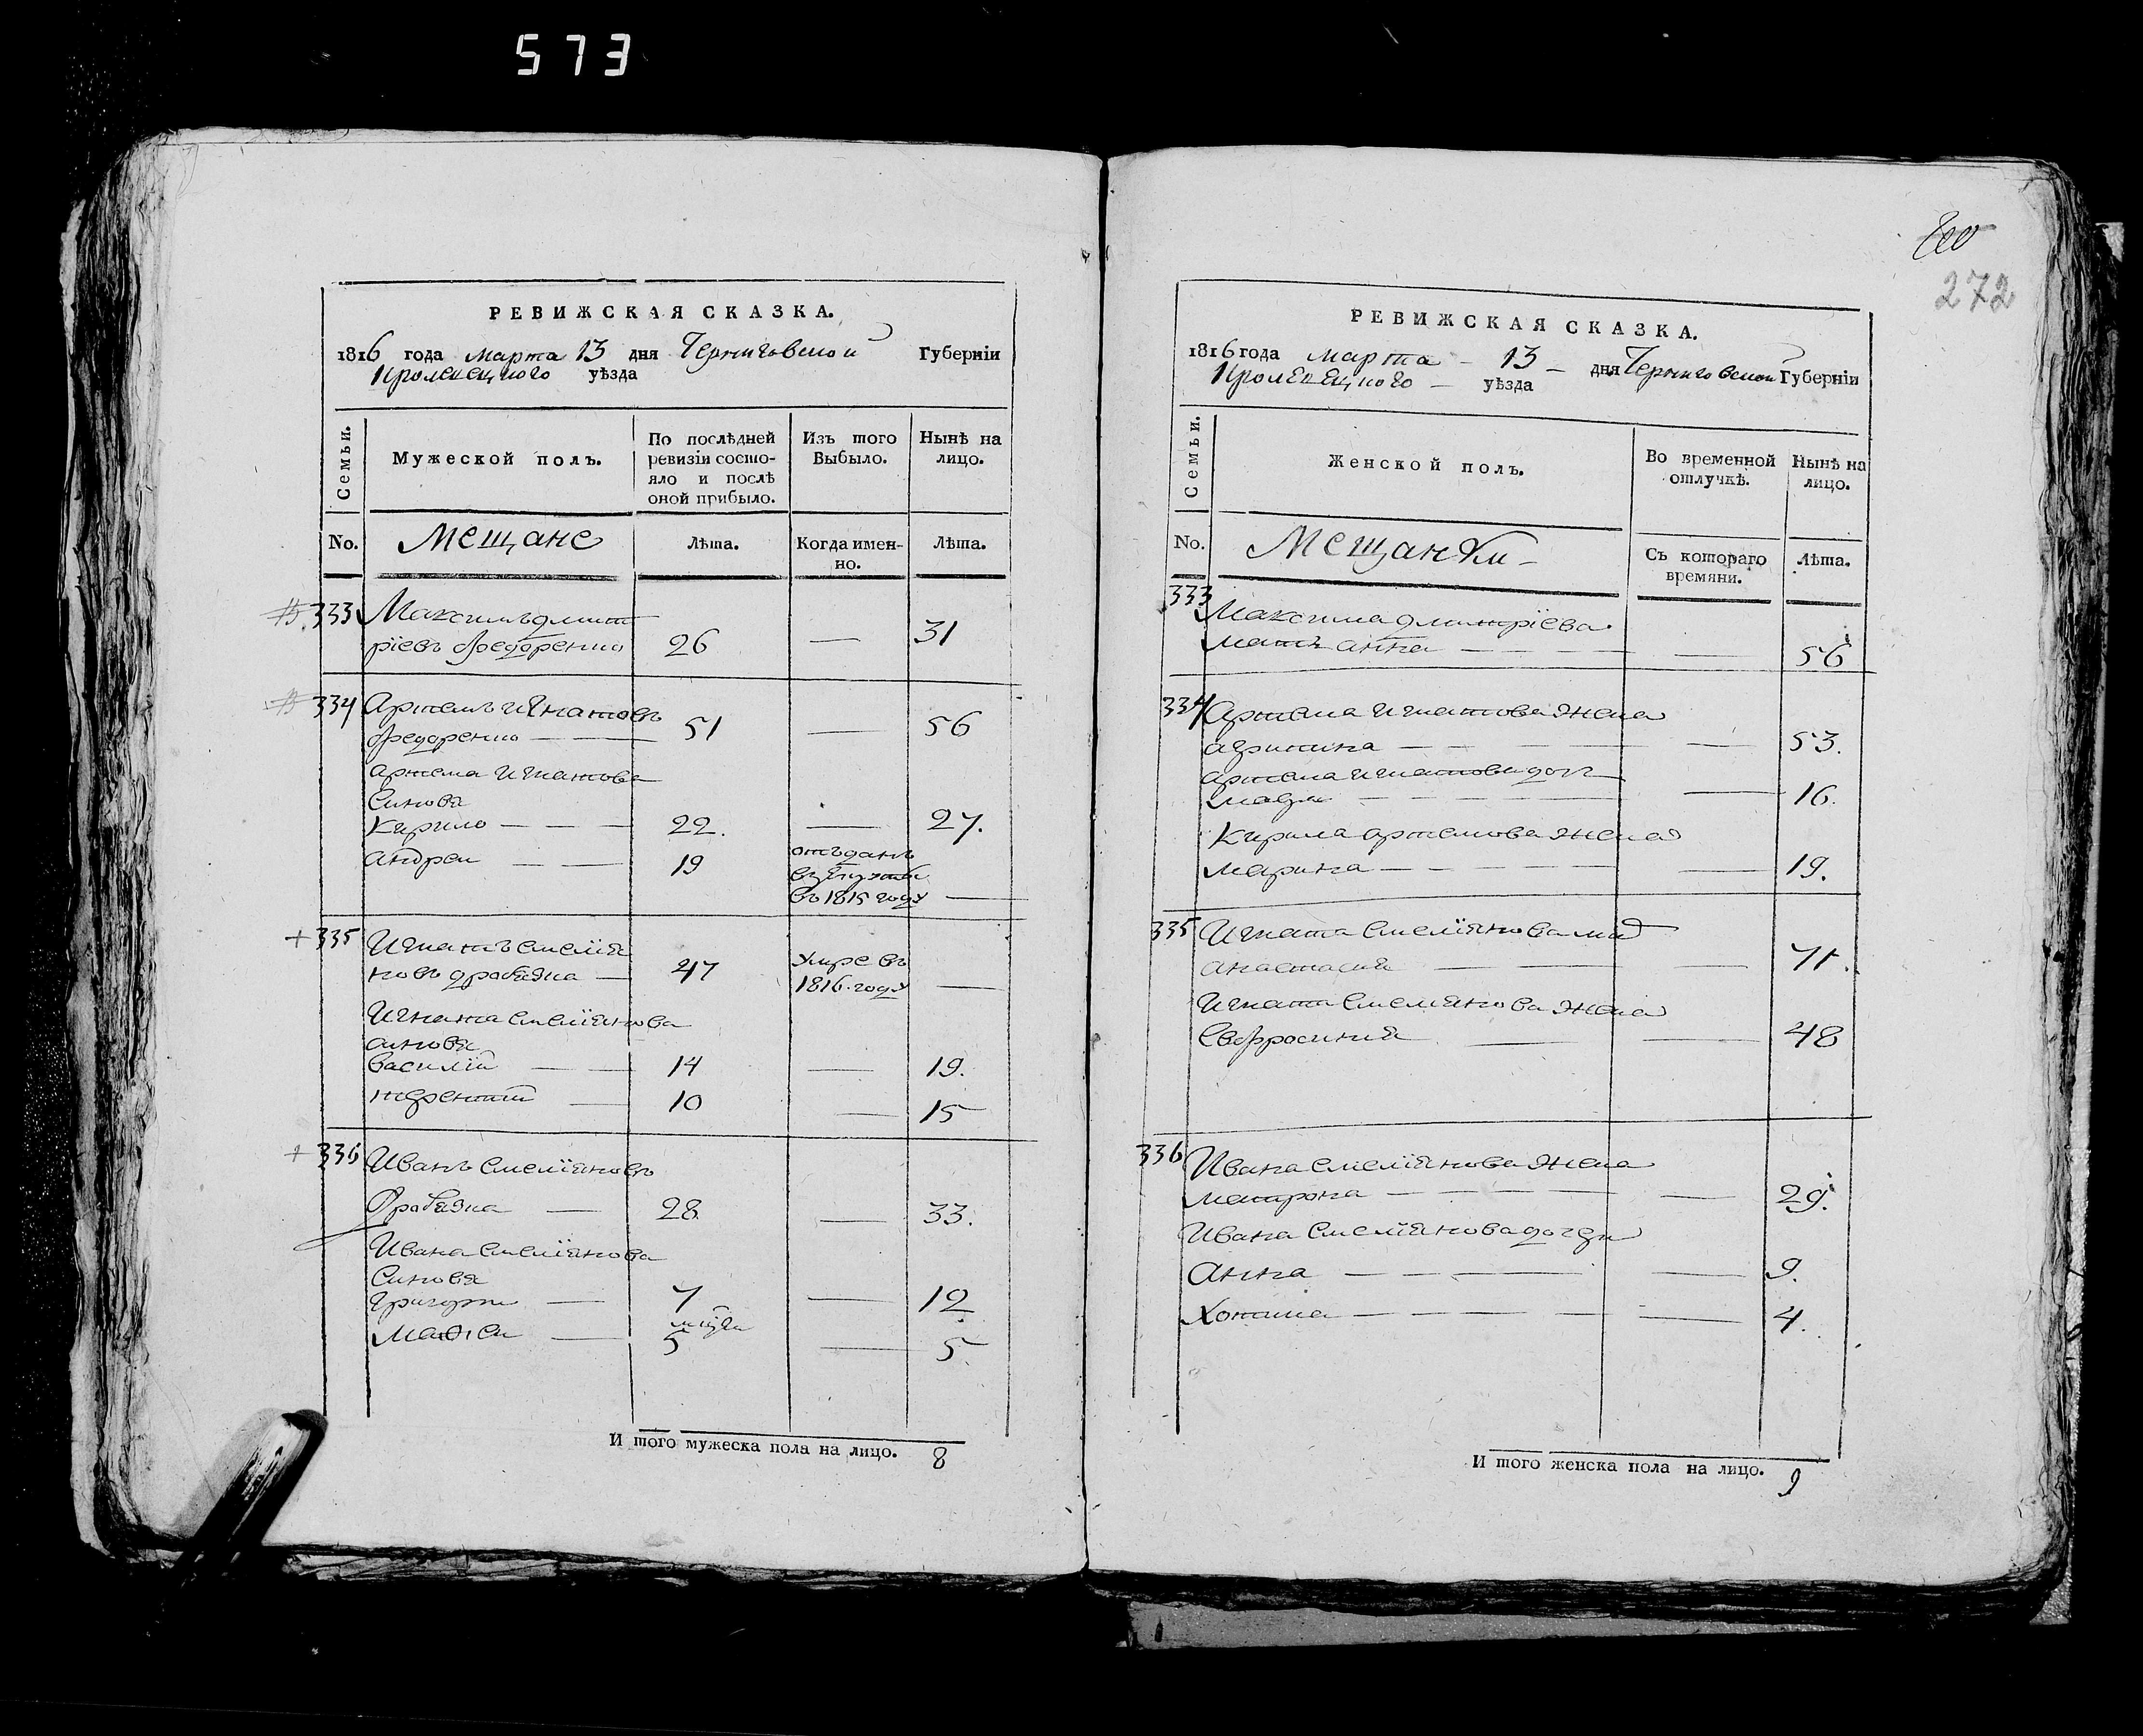 573
РЕВИЖСКАЯ СКАЗКА.
1816 года марта 13 дня Черниговской Губерніи
Кролевецкого уѣзда
Семьи.
Мужеской полъ.
По послѣдней ревизіи состо-яло и послѣ оной прибыло.
Изъ того Выбыло.
Нынѣ на лицо.
No.
Мещане
Лѣта.
Когда имен-но.
Лѣта.
333 Максимъ дмит
ріевъ Федоренко 26 — 31
334 Артемъ Игнатовъ
Федоренко — 51 — 56
артема Игнатова
Синовя
Кирило — — — 22. — 27.
андреи — — 19 отъданъ
въ 1815 году —
+ 335 Игнатъ Емелія
новъ дробязка — 47 умре въ
1816. году —
Игната Емеліянова
синовя
василій — — 14 — 19.
терентій — 10 — 15
+ 336 Иванъ Емеліяновъ
Дробязка — 28 — 33.
Ивана Емеліянова
Синовя
Григорій — 7 — 12
Матѳеи — 5 — 5.
И того мужеска пола на лицо. 8
272
РЕВИЖСКАЯ СКАЗКА.
1816 года марта - 13 - дня Черниговской Губерніи
Кролевецкого — уѣзда
Семьи.
Женской полъ.
Во временной отлучкѣ.
Нынѣ на лицо.
No.
Мещанки -
Съ котораго времяни.
Лѣта.
333 Максима дмитріева
мать анна — — — — 56
334 Артема Игнатова жена
агрипина — — — — 53.
артема Игнатова доч
— — — — 16.
Кирила артемова жена
марина — — — — 19.
335 Игната Емеліянова
анастасия — — — 71.
Игната Емелянова жена
Евфросиния — — 48
336 Ивана Емеліянова жена
матрона — — — — 29.
Ивана Емеліянова дочери
анна — — — — 9.
— — — — 4.
И того женска пола на лицо. 9